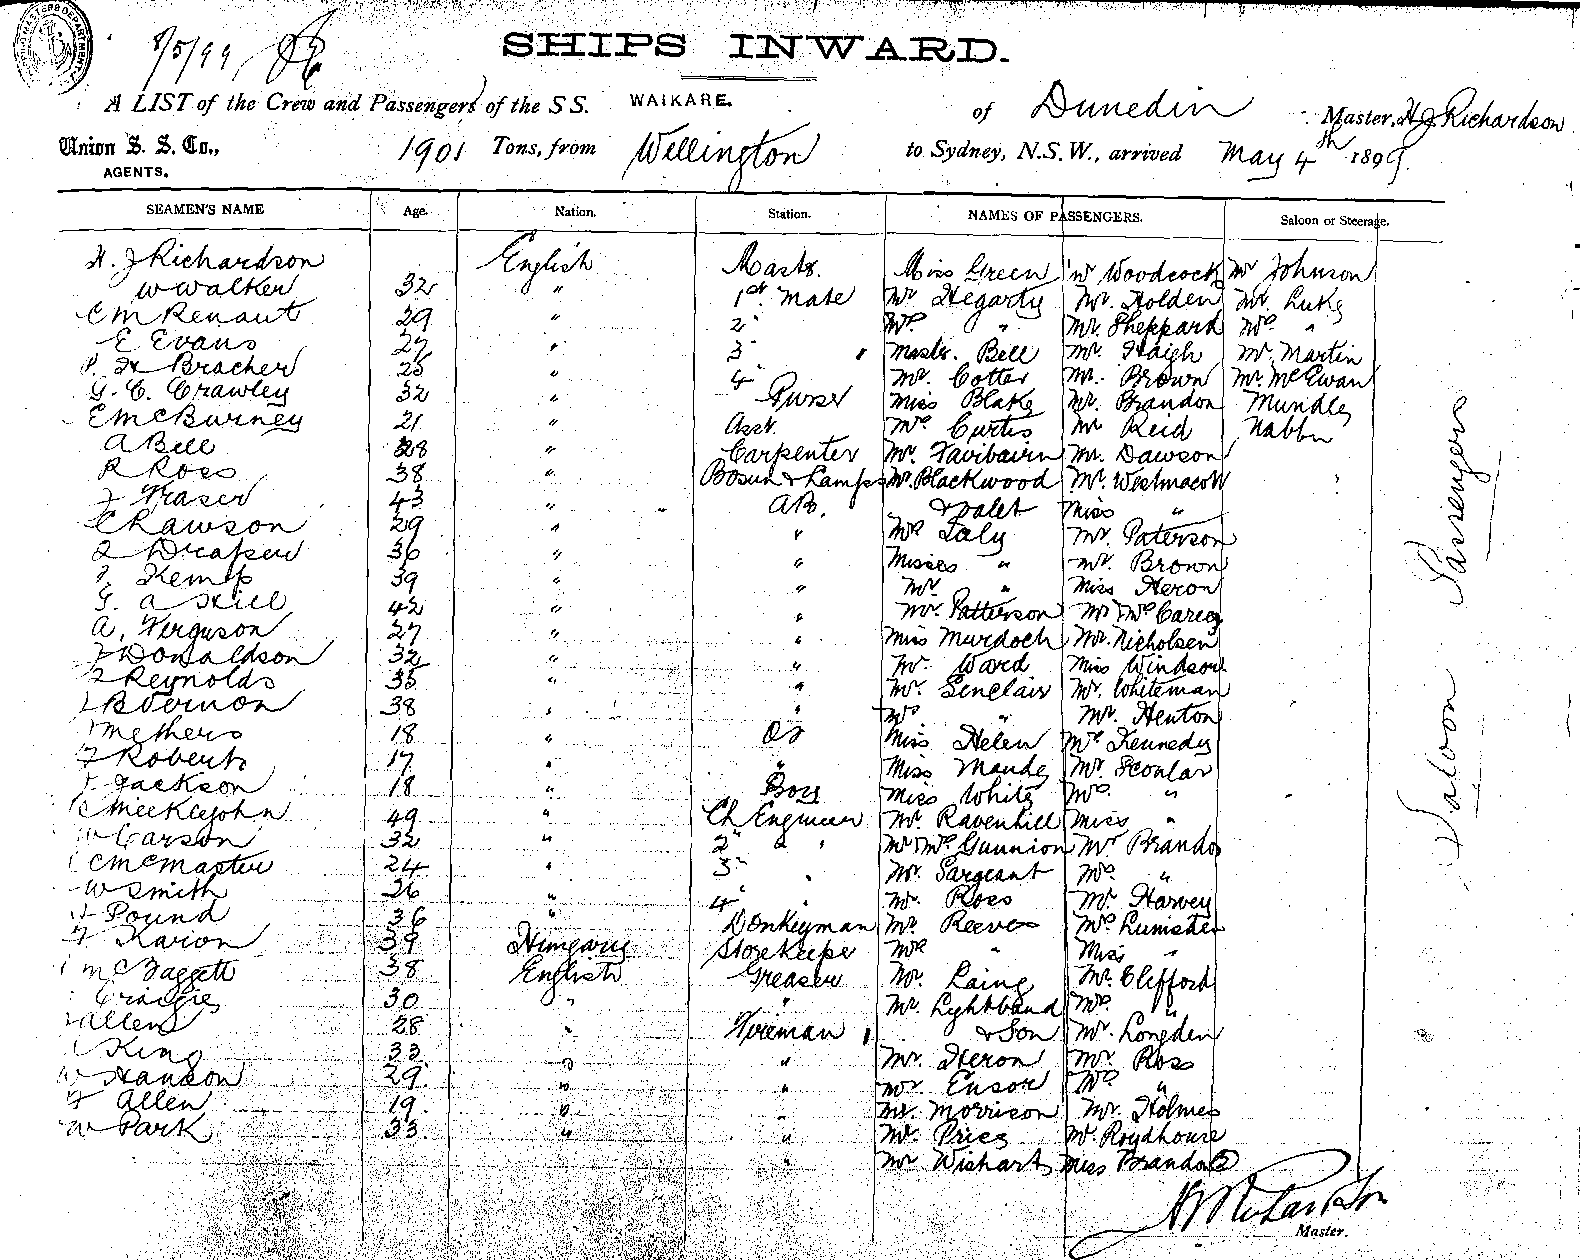 8/5/99
SHIPS INWARD.
A LIST of the Crew and Passengers of the S S. WAIKARE. of Dunedin Master, H J Richardson
Union S. S. Co., 1901 Tons, from Wellington to Sydney, N.S.W., arrived May 4th 1899.
AGENTS.
SEAMEN'S NAME Age. Nation. Station. NAMES OF PASSENGERS. Saloon or Steerage.
H. J Richardson English Mastr. Miss Green Mr Woodcock Mr Johnson
W Walker 32 " 1st Mate Mr Hegarty Mr. Holden Mr. Luke
C M Renaut 29 " 2 " Mrs " Mr. Sheppard Mrs "
E Evans 27 " 3 " Mastr. Bell Mr. Haigh Mr. Martin
Bracher 25 " 4 " Mr. Cotter Mr. Brown Mr. McEwan
G. C. Crawley 32 " Purser Miss Blake Mr. Brandon Mundle
E McBurney 21 " Asst. Mrs Curtis Mr Reid
A Bell 28 " Carpenter Mr. Mr. Dawson
R Ross 38 " Bosun & Lamps Mr. Blackwood Mr. Westmacott
J Fraser 43 " " AB. & Valet Miss "
C Lawson 29 " " Mrs Mr. Paterson
Draper 36 " " Misses " Mr. Brown
Kemp 39 " " Mr. " Miss Heron
G. A Skill 42 " " Mr. Patterson Mr & Mrs Carey
A. Ferguson 27 " " Miss Murdoch Mr. Nicholsen
J Donaldson 32 " " Mr. Ward Miss Windsor
Reynolds 35 " " Mr. Senclair Mr. Whiteman
B Vernon 38 " " Mrs " Mr. Henton
Methers 18 " OS Miss Helen Mrs Kennedy
F Roberts 17 " " Miss Maude Mr. Scoular
Jackson 18 " Boy Miss White Mrs "
Meeklejohn 49 " Ch Engineer Mr. Ravenhill Miss "
W Carson 32 " 2 " " Mr & Mrs Gunnion Mr Brandon
C McMaster 24 " 3 " Mr. Sargeant Mrs "
W Smith 26 " 4 " Mr. Ross Mr. Harvey
Pound 36 " Donkeyman Mr. Reeves Mrs
F Karion 39 Hungary Storekeeper Mrs " Miss "
38 English Greaser Mr. Laing Mr. Clifford
Craigie 30 " " Mr. Lyhtband Mrs "
Allen 28 " Fireman & Son Mr. Longden
King 33 " " Mr. Heron Mr. Ross
W Hanson 29 " " Mr Ensor Mrs "
F Allen 19 " " Mr. Morrison Mr. Holmes
W Park 33 " " Mr. Price Mr. Roydhouse
" Mr Wishart Miss Brandon
Saloon Passengers
Master.